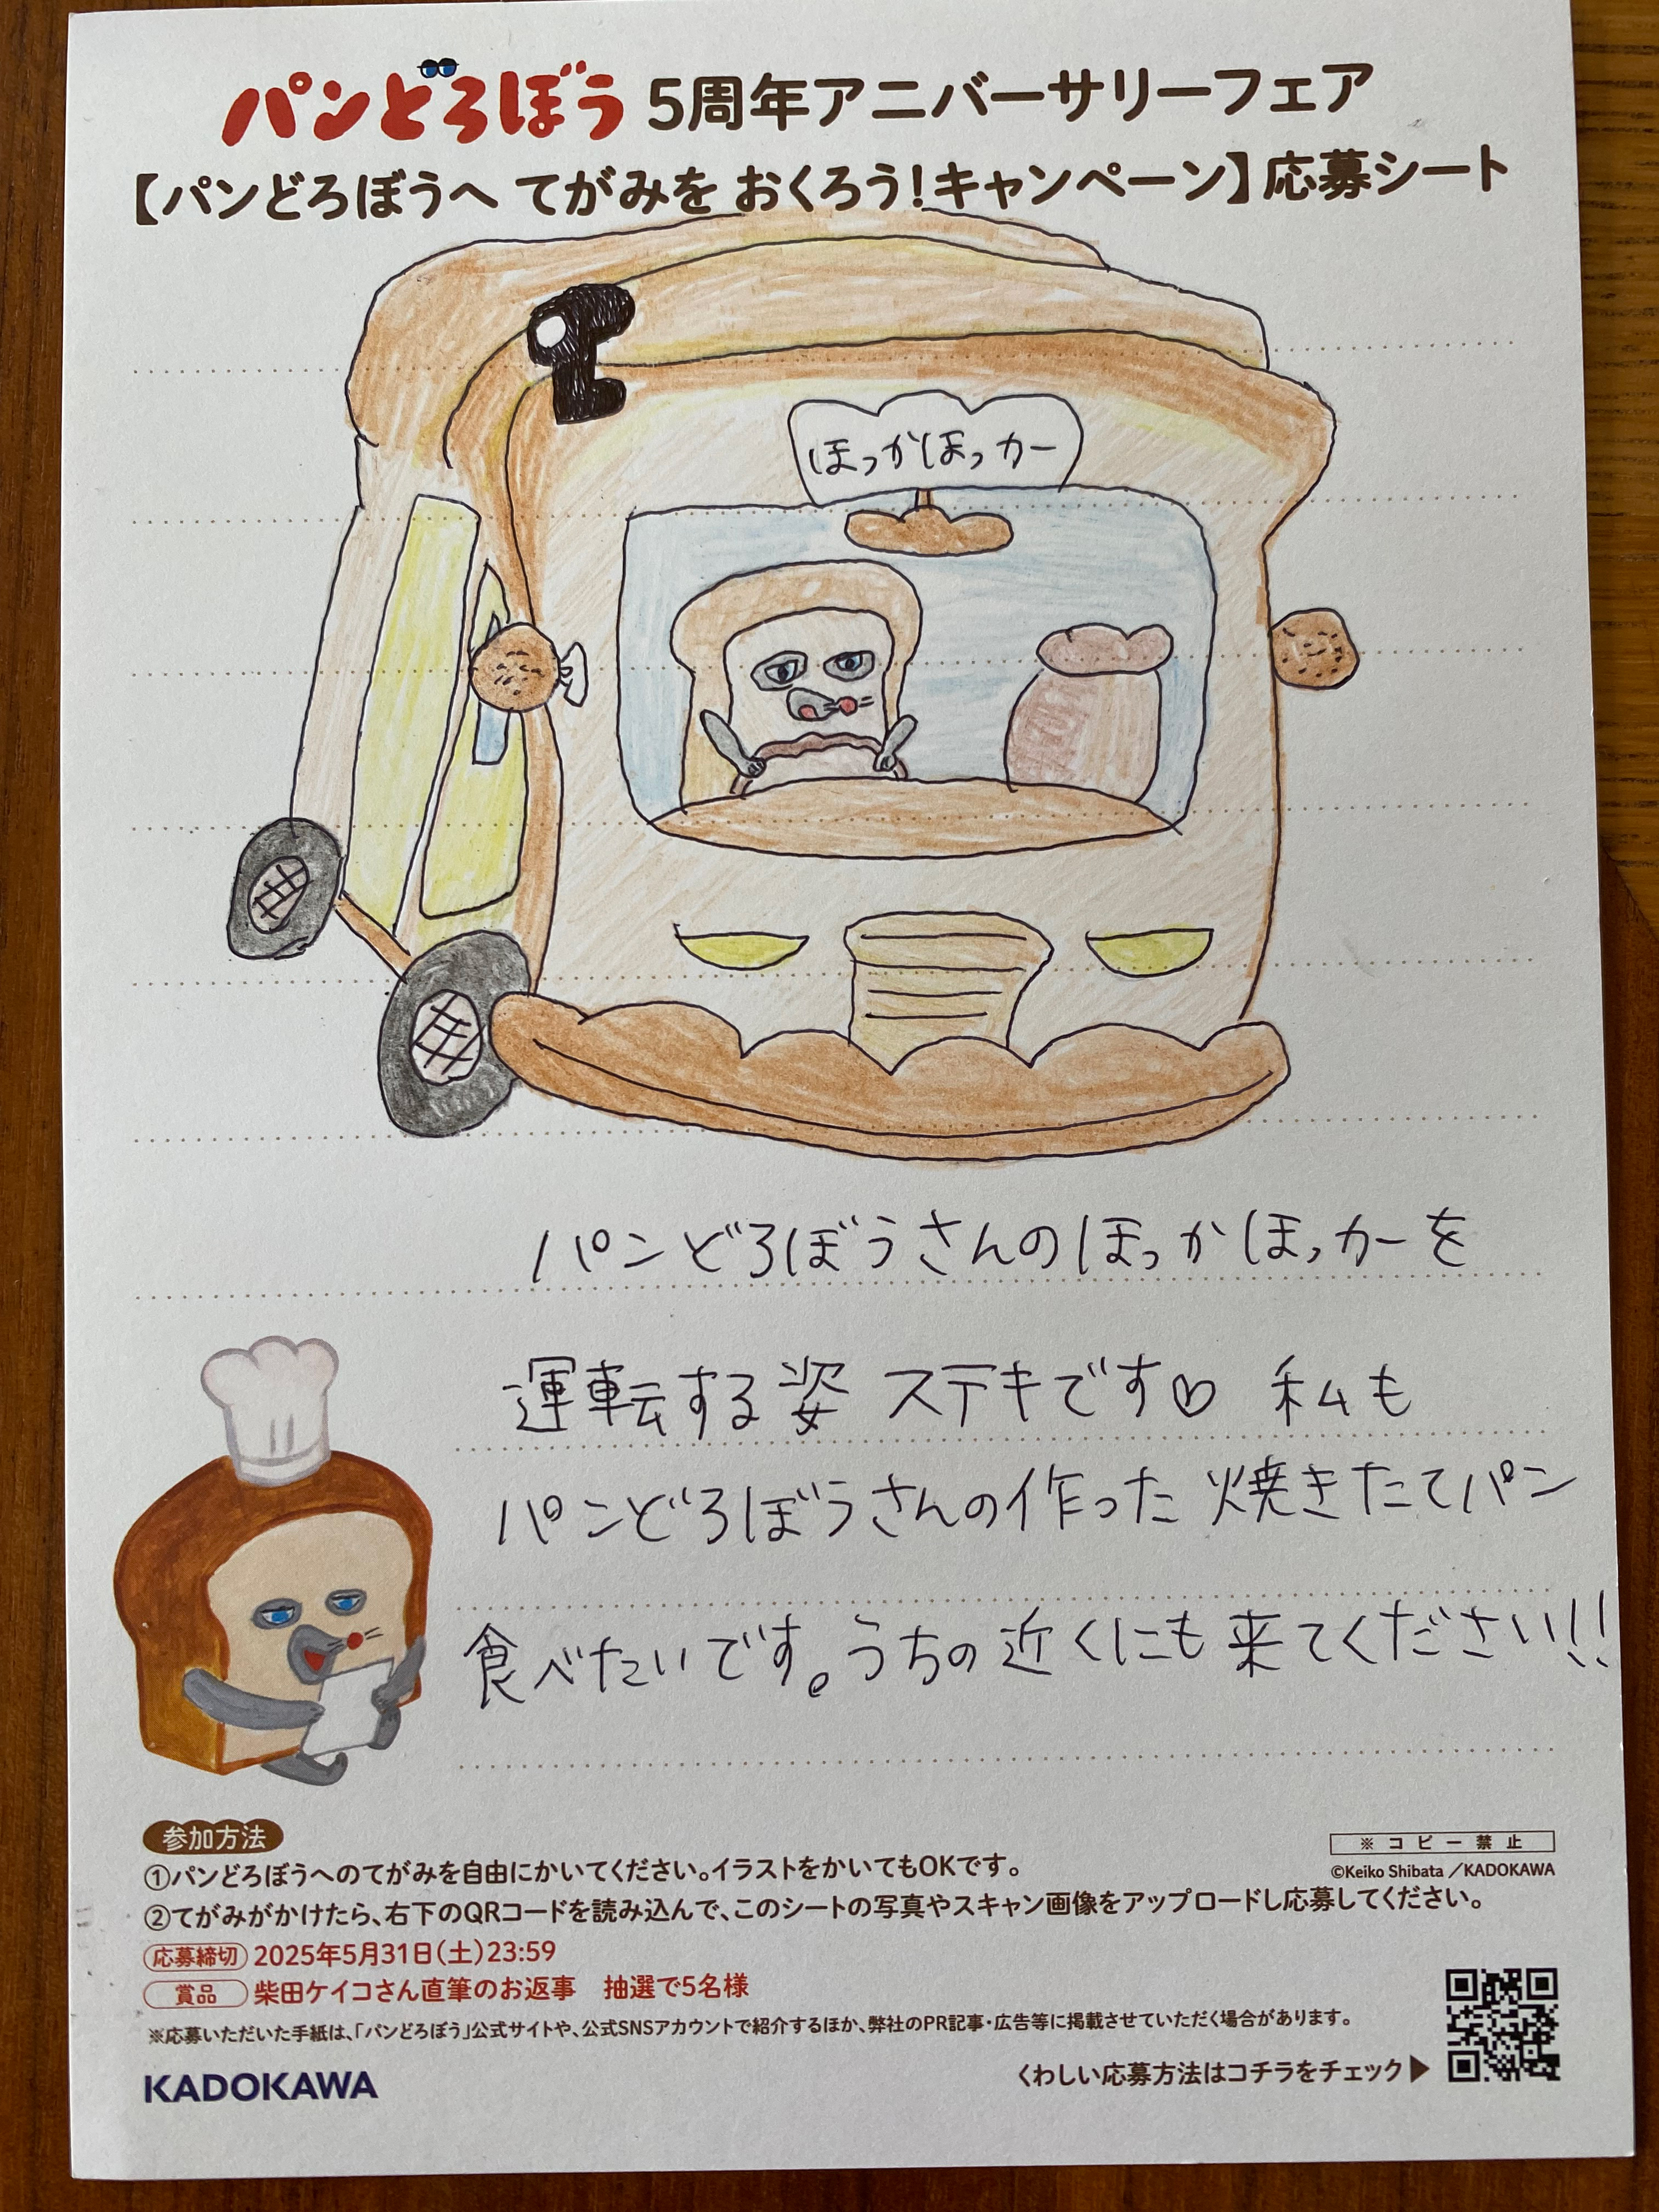 パンどろぼう 5周年アニバーサリーフェア
【パンどろぼうへ てがみを おくろう!キャンペーン】応募シート
ほっかほっカー
パンどろぼうさんのほっかほっカーを
運転する姿 ステキです♡ 私も
パンどろぼうさんの作った 焼きたてパン
食べたいです。うちの近くにも来てください!!
参加方法
①パンどろぼうへのてがみを自由にかいてください。イラストをかいてもOKです。
※コピー禁止
©Keiko Shibata/KADOKAWA
②てがみがかけたら、右下のQRコードを読み込んで、このシートの写真やスキャン画像をアップロードし応募してください。
応募締切 2025年5月31日(土)23:59
賞品 柴田ケイコさん直筆のお返事 抽選で5名様
※応募いただいた手紙は、「パンどろぼう」公式サイトや、公式SNSアカウントで紹介するほか、弊社のPR記事・広告等に掲載させていただく場合があります。
くわしい応募方法はコチラをチェック▶
KADOKAWA